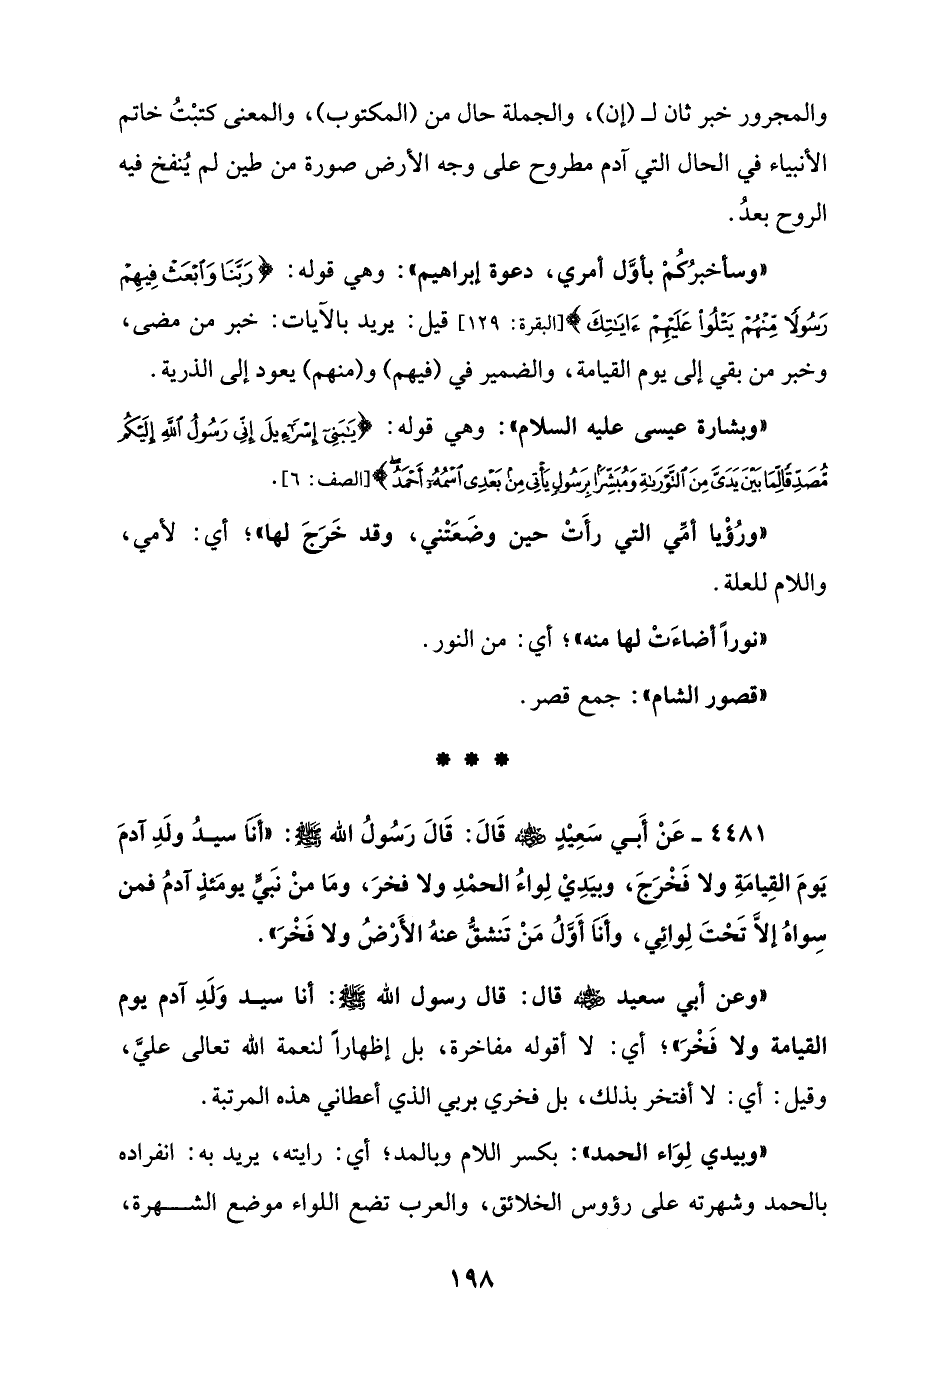 والمجرور خبر ثان لـ (إن)، والجملة حال من (المكتوب)، والمعنى كتبْتُ خاتم
الأنبياء في الحال التي آدم مطروح على وجه الأرض صورة من طين لم يُنفخ فيه
الروح بعدُ.
«وسأخبرُكُمْ بأوَّل أمري، دعوة إبراهيم»: وهي قوله: ﴿رَبَّنَا وَٱبْعَثْ فِيهِمْ
رَسُولًا مِّنْهُمْ يَتْلُوا۟ عَلَيْهِمْ ءَايَٰتِكَ﴾[البقرة: ١٢٩] قيل: يريد بالآيات: خبر من مضى،
وخبر من بقي إلى يوم القيامة، والضمير في (فيهم) و(منهم) يعود إلى الذرية.
«وبشارة عيسى عليه السلام»: وهي قوله: ﴿يَٰبَنِىٓ إِسْرَٰٓءِيلَ إِنِّى رَسُولُ ٱللَّهِ إِلَيْكُم
مُّصَدِّقًا لِّمَا بَيْنَ يَدَىَّ مِنَ ٱلتَّوْرَىٰةِ وَمُبَشِّرًۢا بِرَسُولٍ يَأْتِى مِنۢ بَعْدِى ٱسْمُهُۥٓ أَحْمَدُ﴾[الصف: ٦].
«ورُؤْيا أمِّي التي رأَتْ حين وضَعَتْني، وقد خَرَجَ لها»؛ أي: لأمي،
واللام للعلة.
«نوراً أضاءَتْ لها منه»؛ أي: من النور.
«قصور الشام»: جمع قصر.
* * *
٤٤٨١ ـ عَنْ أَبي سَعِيْدٍ ﵁ قَالَ: قَالَ رَسُولُ الله ﷺ: «أَنَا سيدُ ولَدِ آدمَ
يَومَ القِيامَةِ ولا فَخْرَجَ، وبيَدِيْ لِواءُ الحمْدِ ولا فخرَ، ومَا منْ نَبيٍّ يومَئذٍ آدمُ فمن
سِواهُ إلاَّ تَحْتَ لِوائِي، وأَنَا أَوَّلُ مَنْ تَنشقُّ عنهُ الأَرْضُ ولا فَخْرَ».
«وعن أبي سعيد ﵁ قال: قال رسول الله ﷺ: أنا سيد وَلَدِ آدم يوم
القيامة ولا فَخْرَ»؛ أي: لا أقوله مفاخرة، بل إظهاراً لنعمة الله تعالى عليَّ،
وقيل: أي: لا أفتخر بذلك، بل فخري بربي الذي أعطاني هذه المرتبة.
«وبيدي لِوَاء الحمد»: بكسر اللام وبالمد؛ أي: رايته، يريد به: انفراده
بالحمد وشهرته على رؤوس الخلائق، والعرب تضع اللواء موضع الشهرة،
١٩٨